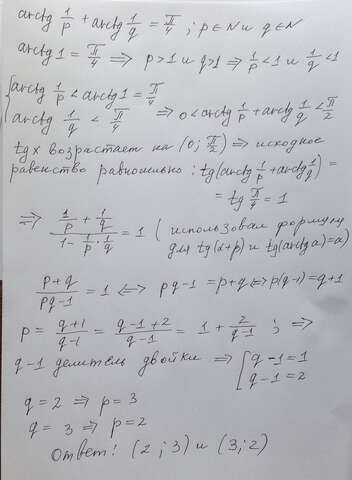 arctg 1/p + arctg 1/q = π/4 ; p ∈ N и q ∈ N
arctg 1 = π/4 ⇒ p > 1 и q > 1 ⇒ 1/p < 1 и 1/q < 1
{ arctg 1/p < arctg 1 = π/4
arctg 1/q < π/4 ⇒ 0 < arctg 1/p + arctg 1/q < π/2
tg x возрастает на (0; π/2) ⇒ исходное
равенство равносильно: tg(arctg 1/p + arctg 1/q) =
= tg π/4 = 1
⇒ (1/p + 1/q)/(1 - 1/p · 1/q) = 1 ( использовал формулы
для tg(α+β) и tg(arctg a) = a)
(p+q)/(pq-1) = 1 ⇔ pq-1 = p+q ⇔ p(q-1) = q+1
p = (q+1)/(q-1) = (q-1+2)/(q-1) = 1 + 2/(q-1) ; ⇒
q-1 делитель двойки ⇒ [ q-1 = 1
q-1 = 2
q = 2 ⇒ p = 3
q = 3 ⇒ p = 2
Ответ! (2 ; 3) и (3; 2)